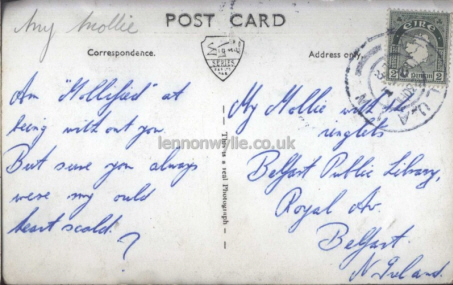 My Mollie
POST CARD
Correspondence.
Address only.
Am "Mollified" at
being without you
But sure you always
were my ould
heart scald.
?
This is a real Photograph
lennonwylie.co.uk
My Mollie with the
ringlets
Belfast Public Library,
Royal Av.
Belfast.
N. Ireland.
SERIES
2 2